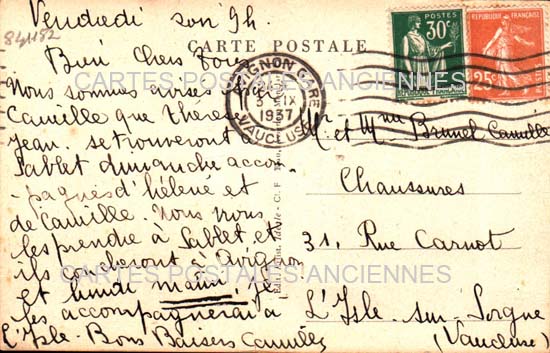 Vendredi soir 9h.
841182
Bien Chers Tous
CARTE POSTALE
Nous sommes avisés
Camille que Thérèse
Jean. se trouveront à
Sablet dimanche acco-
-pagnés d'hélène et
de Camille. Nous
les prendre à Sablet et
ils coucheront à Avignon
et lundi matin, je
les accompagnerai à
L'Isle. Bons Baisers Camille
POSTES
30c
REPUBLIQUE FRANÇAISE
25c
AVIGNON GARE
3 - IX
1937
VAUCLUSE
Mr et Mme Brunel Camille
Chaussures
31, Rue Carnot
L'Isle-sur-Sorgue
(Vaucluse)
CARTES POSTALES ANCIENNES
CARTES POSTALES ANCIENNES